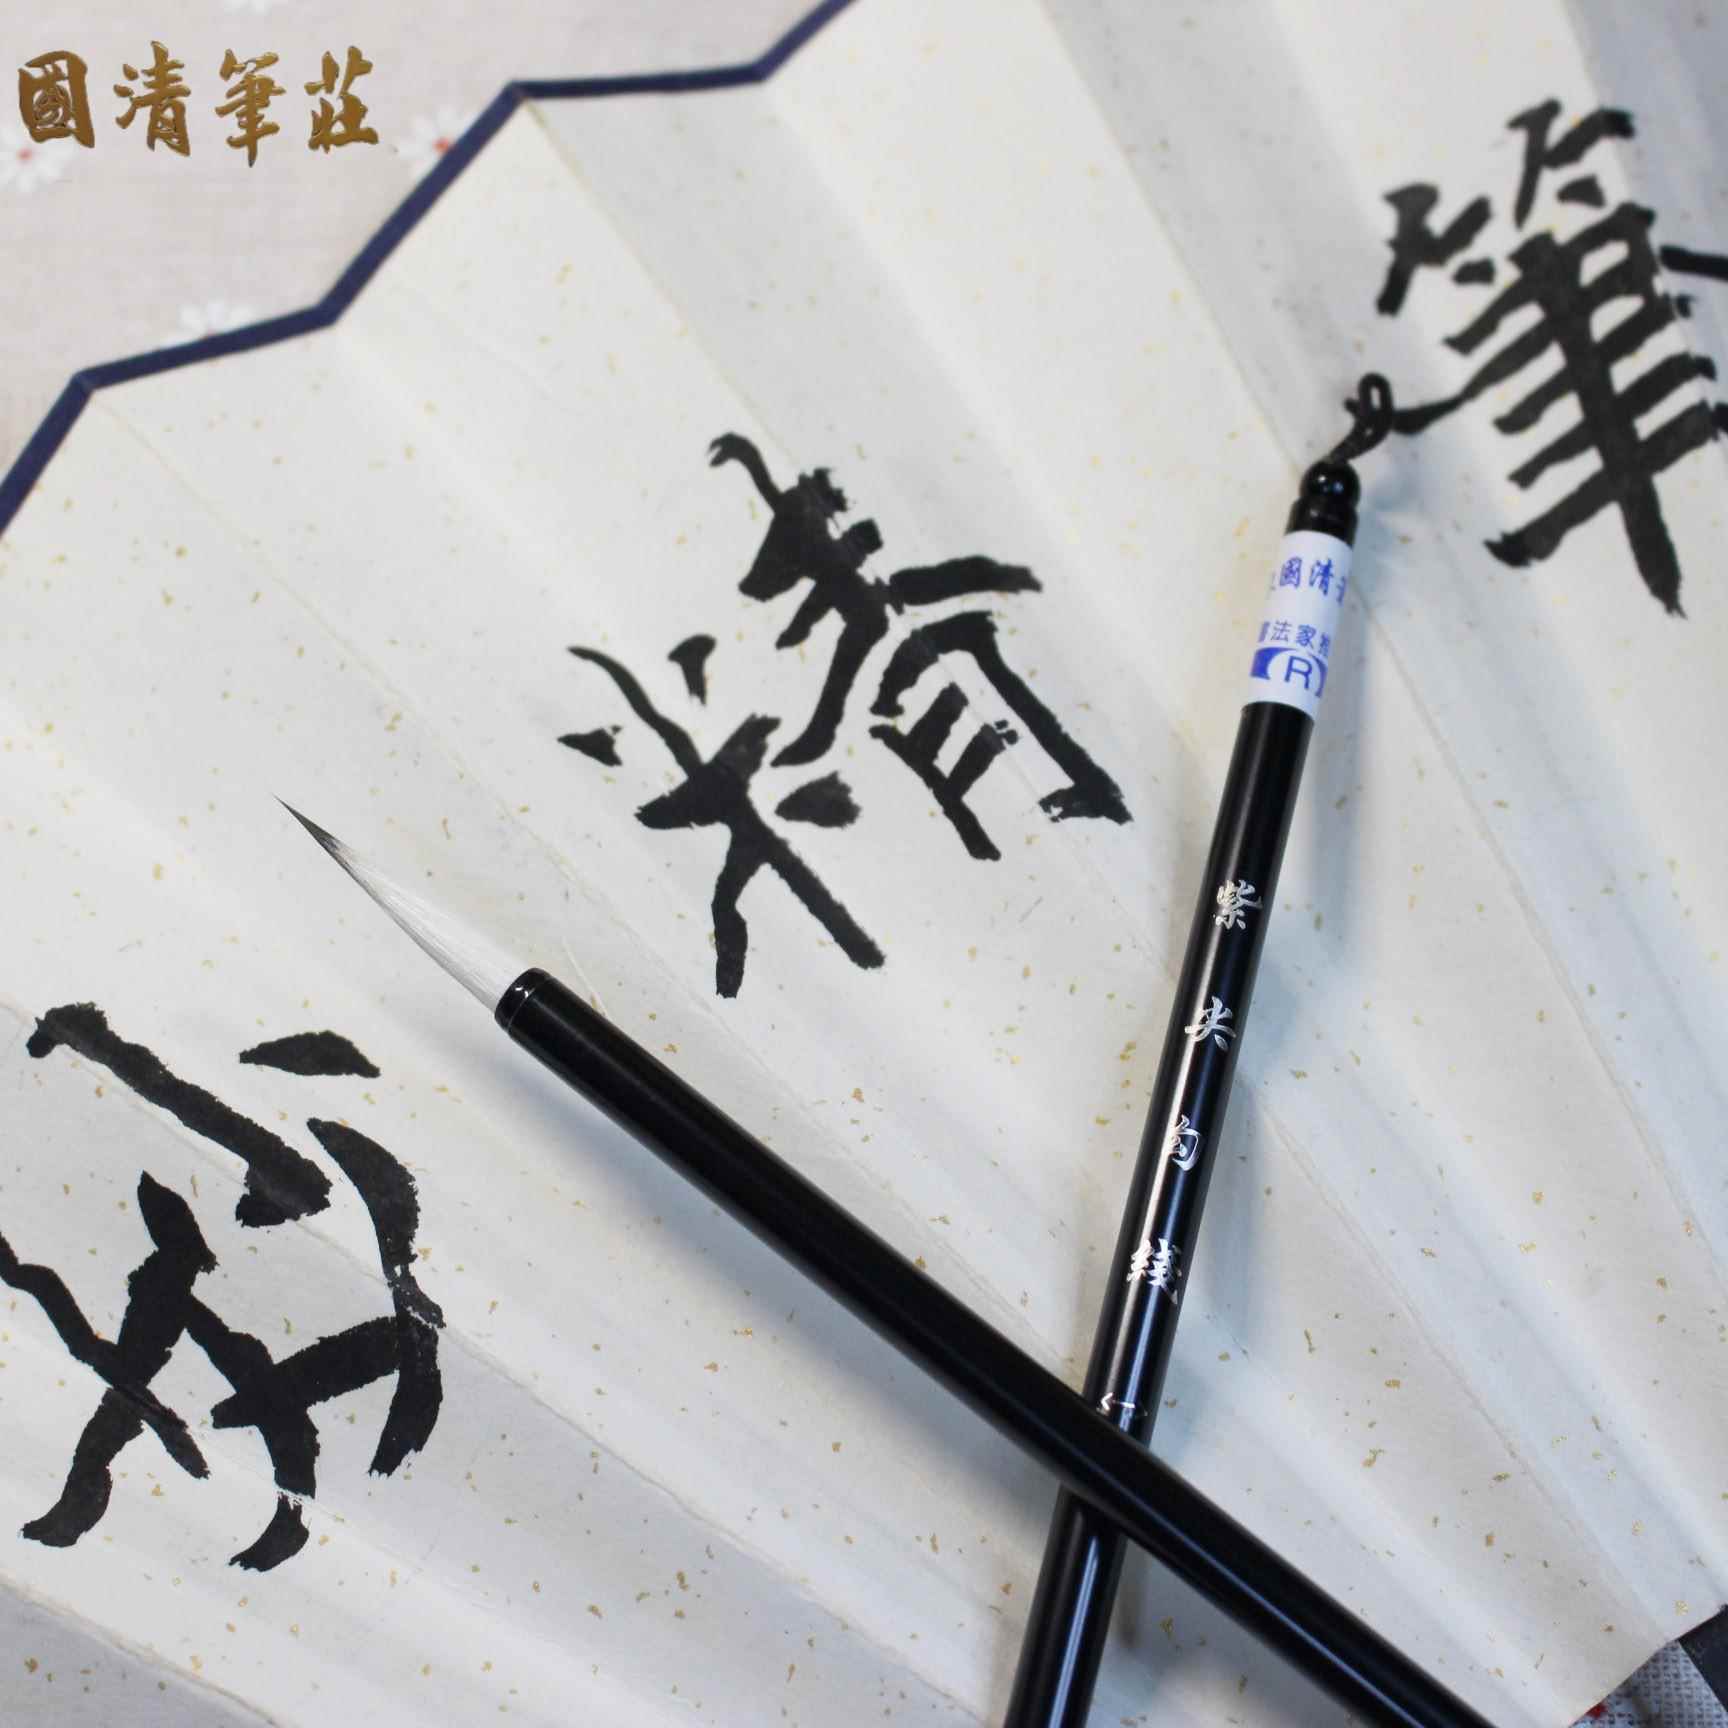 國清筆莊
筆
精
妙
國清
法家
【R】
紫尖勾綫